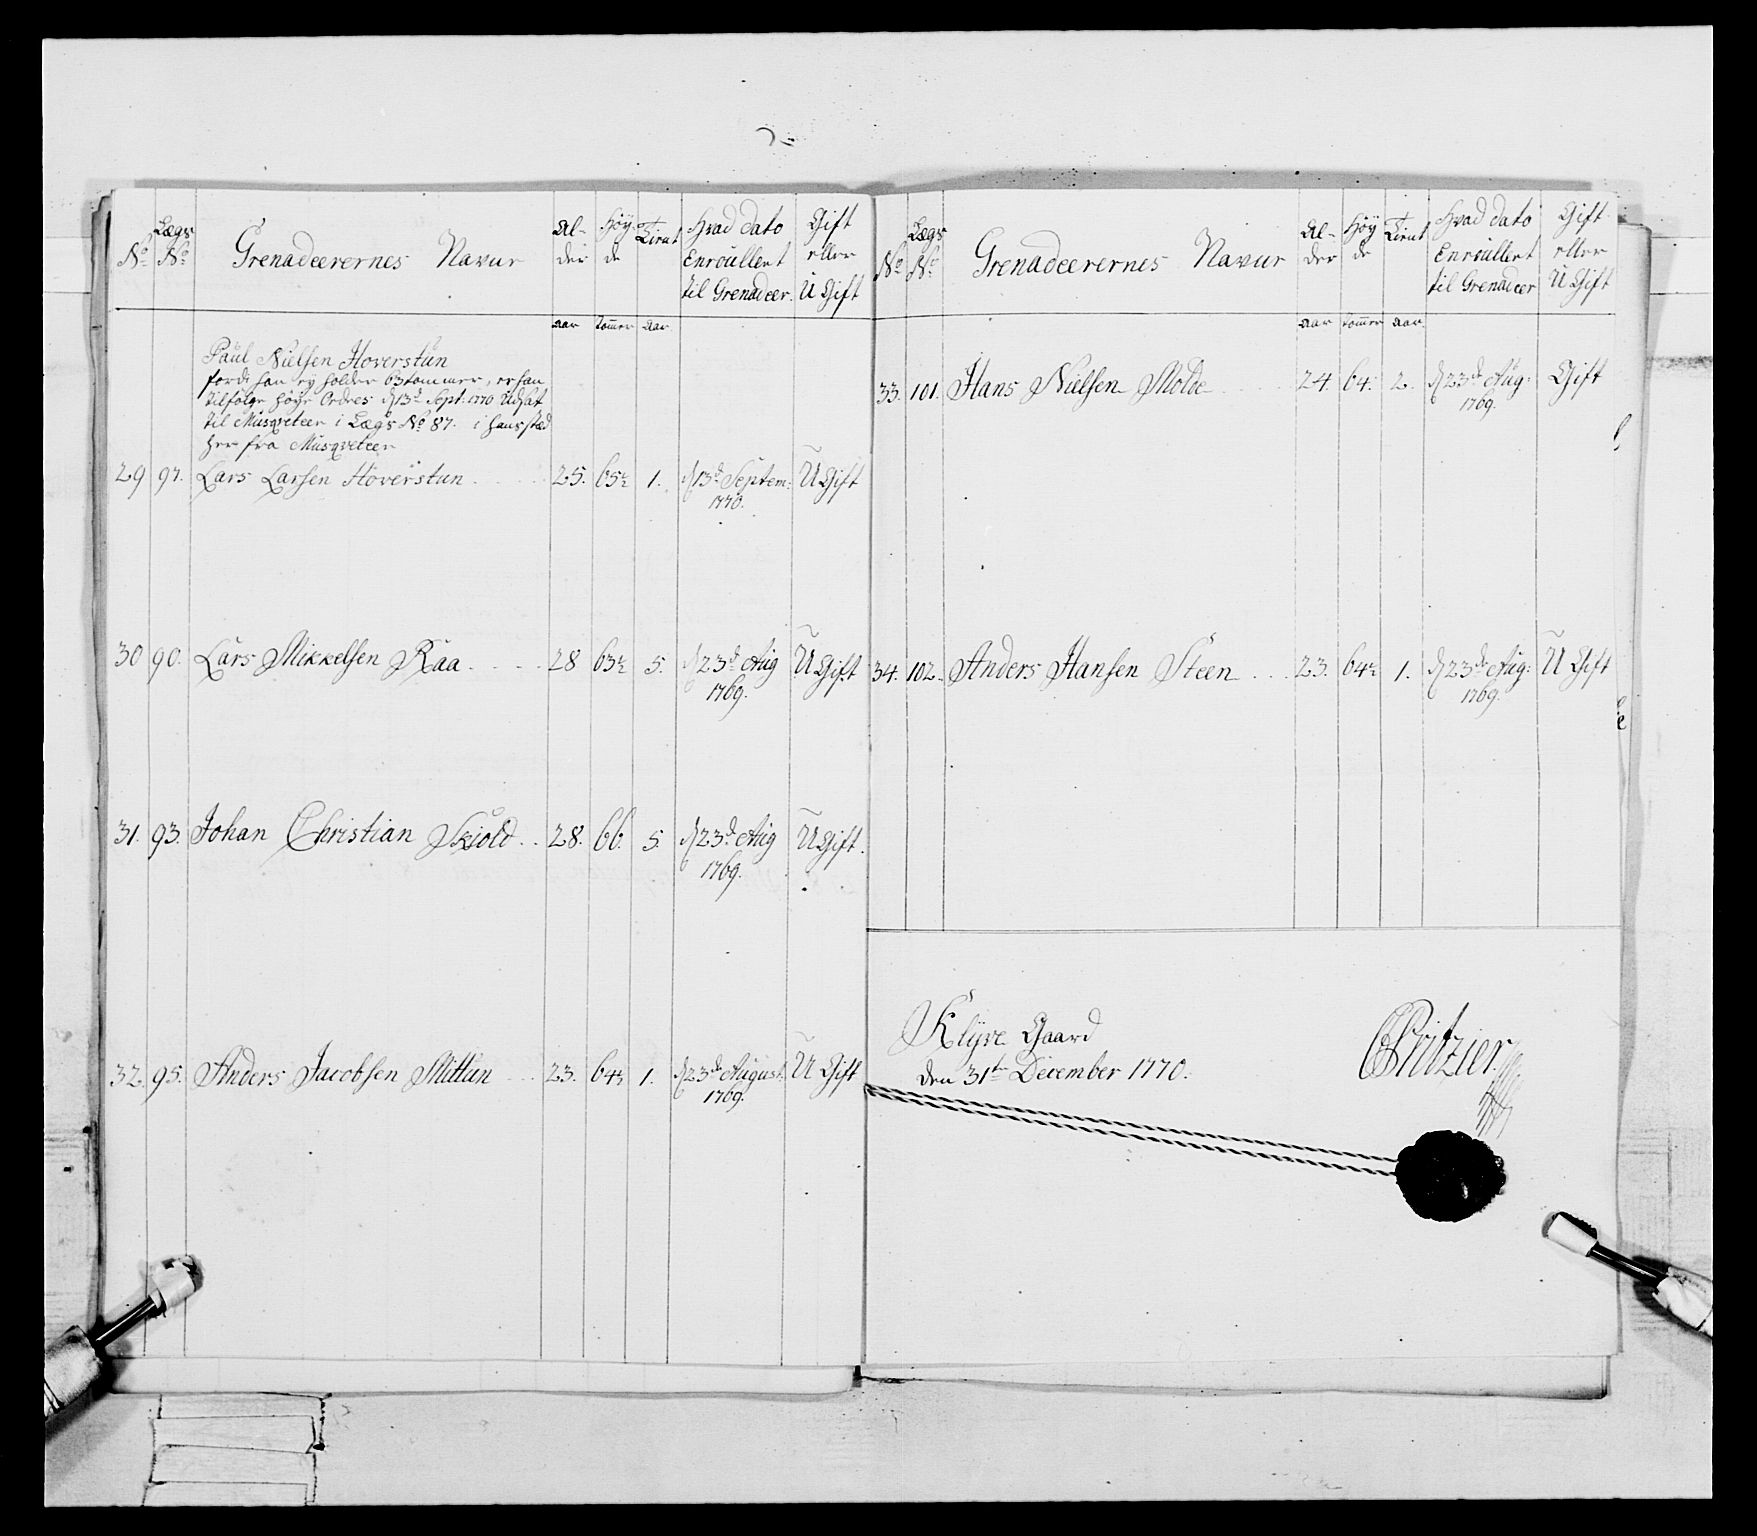 No Lægs No Grenadeerernes Navne Al-der Höy-de Tient Hvad dato Enroullert til Grenadeer. Gift eller U Gift
aar tommer aar
Paul Nielsen Hoverstun
fordi han ey holder 63 tommer, er han
tilfölge höye Ordres d 13de Sept: 1770 Udsat
til Musqveteer i Lægs No 87. i hans stæd
her fra Musqveteer
29 97. Lars Larsen Hoverstun 25. 65½ 1. d 13de Septem: U Gift
1770.
30 90. Lars Mikkelsen Raa 28 63½ 5. d 23de Aug U Gift
1769.
31. 93. Johan Christian Skiold 28. 66. 5 d 23de Aug U Gift.
1769.
32. 95. Anders Jacobsen Mittun 23. 64½ 1. d 23de August. U Gift
1769.
No Lægs No Grenadeerernes Navne Al-der Höy de Tient Hvad dato Enroullert til Grenadeer Gift eller U Gift
aar tommer aar.
33. 101. Hans Nielsen Molde 24 64. 2. d 23de Aug: Gift
1769.
34. 102. Anders Hansen Steen 23. 64½ 1. d 23de Aug: U Gift
1769.
Klyve Gaard
den 31te December 1770.